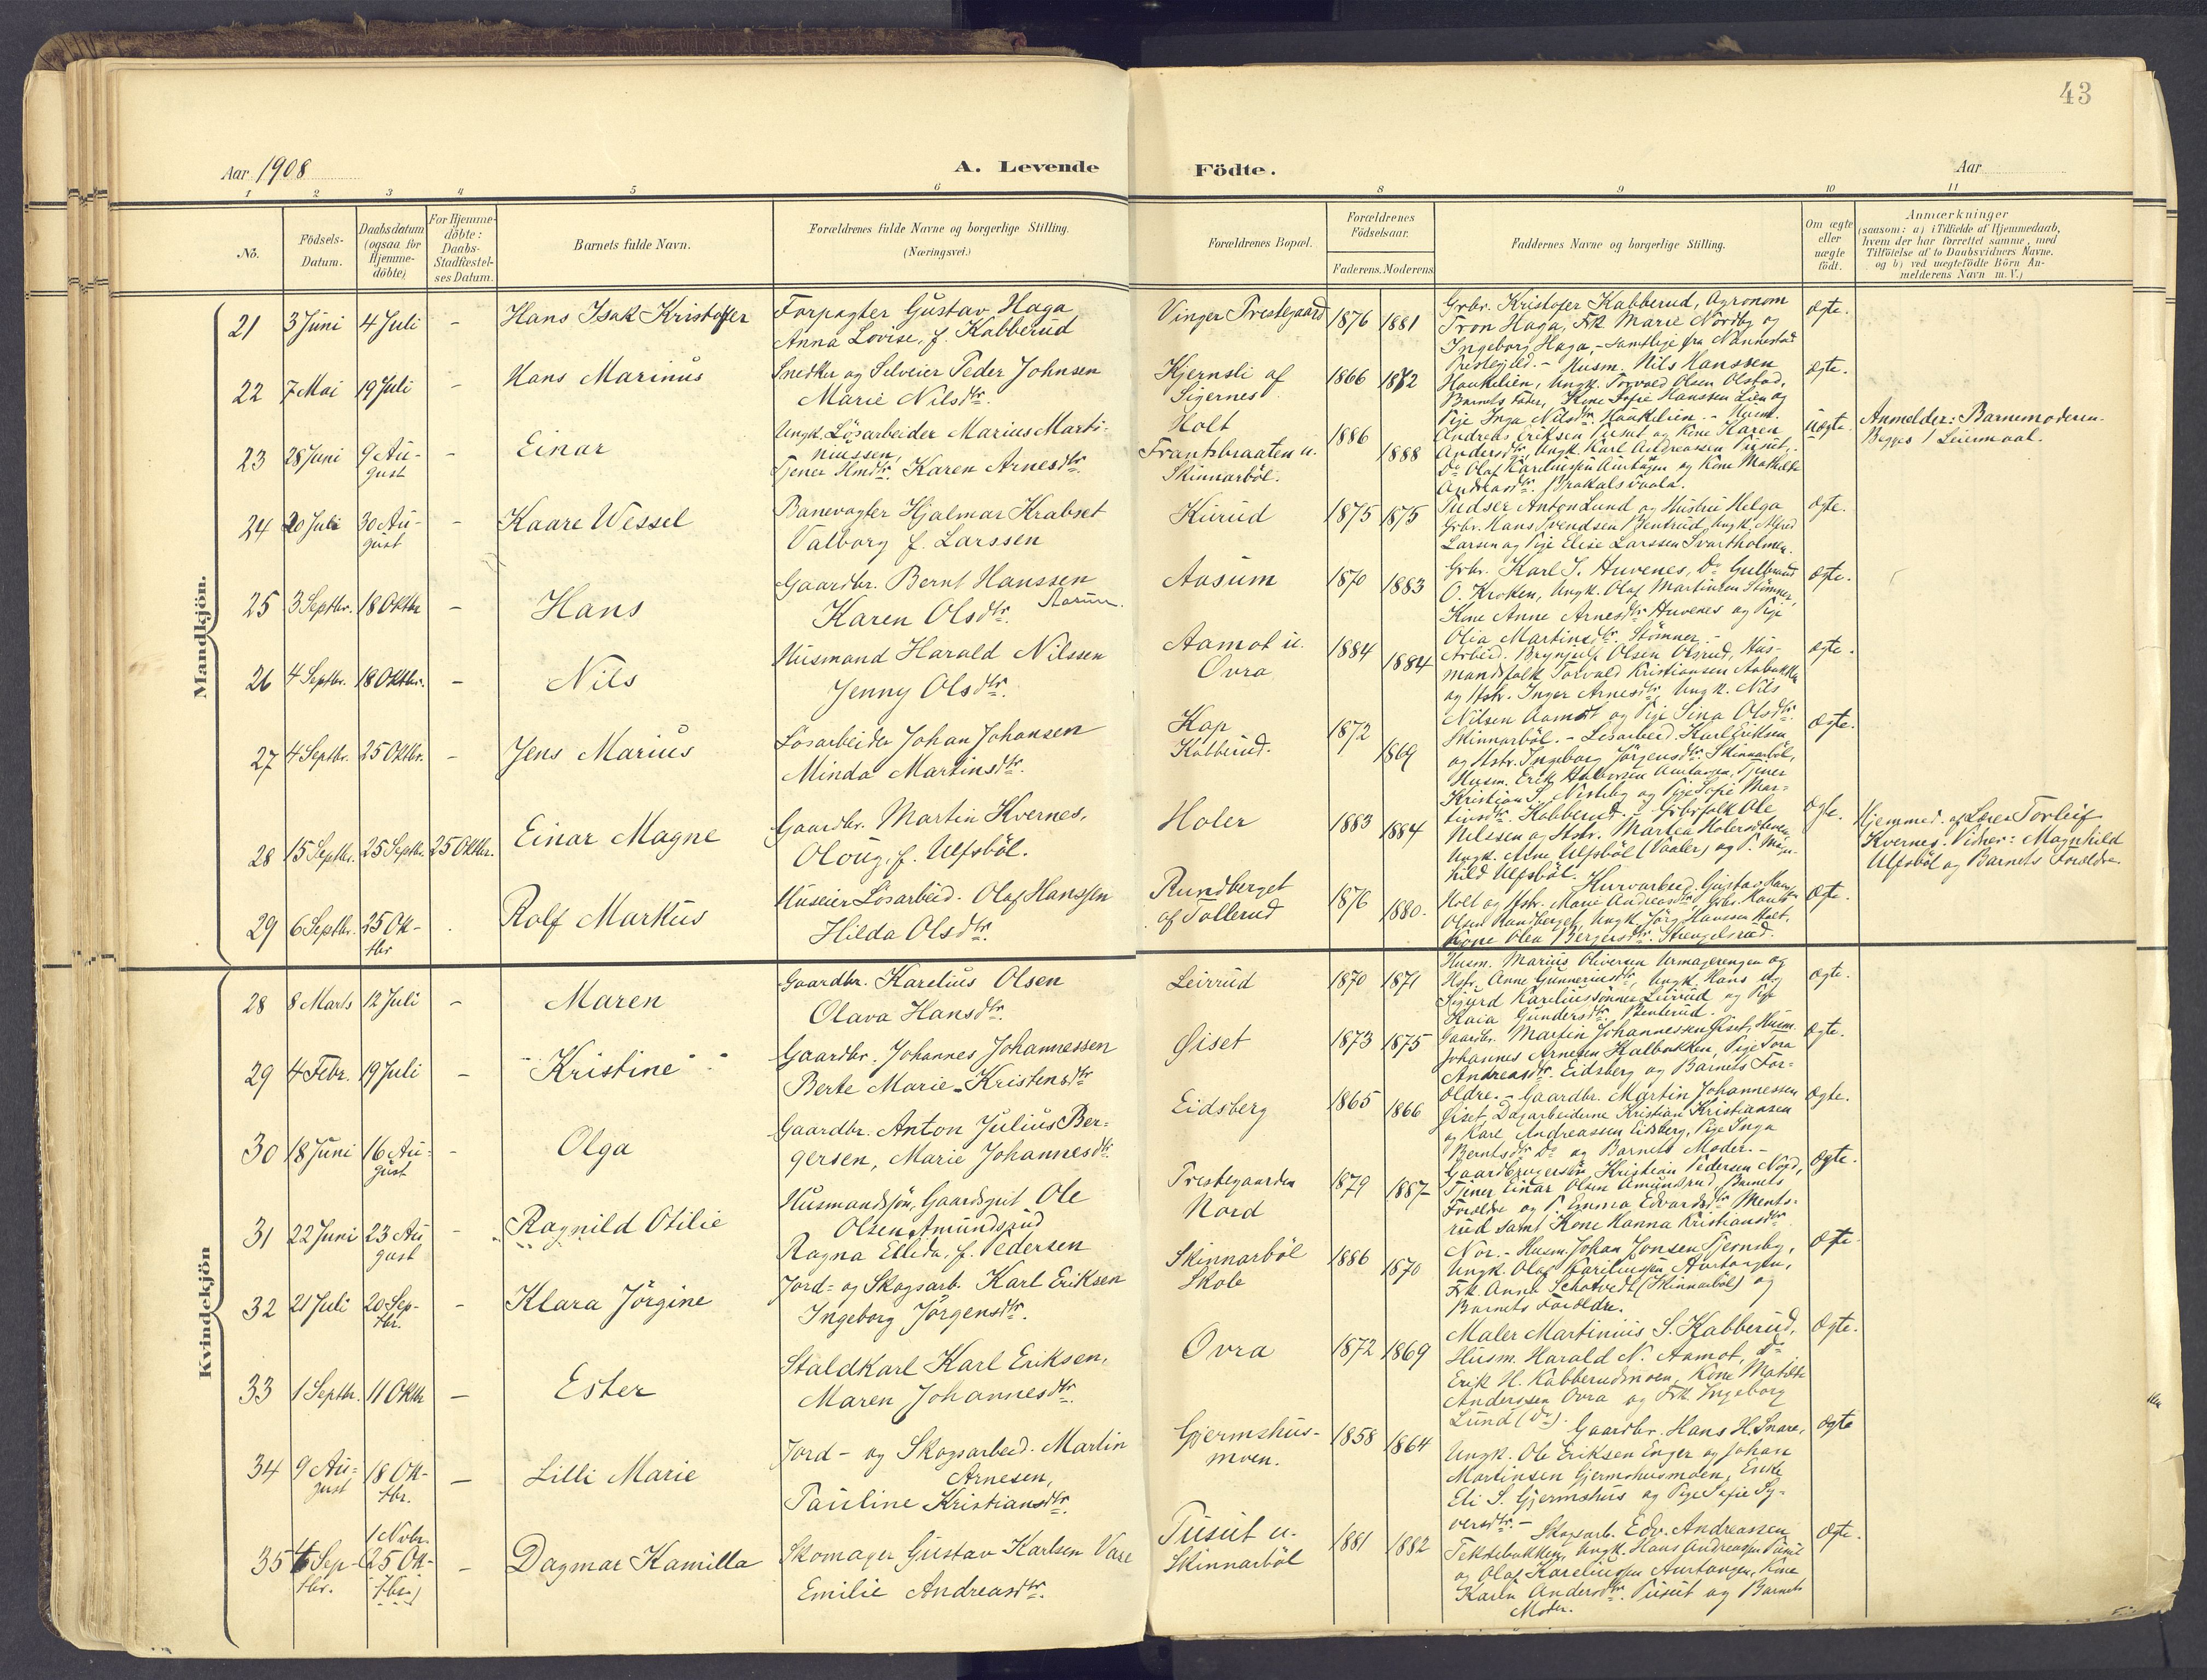 43
Aar 1908
A. Levende
Födte.
Aar
1 2 3 4 5 6 8 9 10 11
No.
Födsels-Datum.
Daabsdatum (ogsaa for Hjemme-döbte)
For Hjemme-döbte: Daabs-Stadfæstel-ses Datum.
Barnets fulde Navn.
Forældrenes fulde Navne og borgerlige Stilling.
(Næringsvei.)
Forældrenes Bopæl.
Forældrenes Födselsaar.
Faderens. Moderens
Faddernes Navne og borgerlige Stilling.
Om ægte eller uægte födt.
Anmærkninger
(saasom: a) i Tilfælde af Hjemmedaab,
hvem der har forrettet samme, med
Tilföielse af to Daabsvidners Navne.
og b) ved uægtefödte Börn An-
melderens Navn m. V.)
Mandkjön.
21 3 Juni 4 Juli - Hans Isak Kristofer
Forpagter Gustav Haga
Anna Lovise, f. Kabberud
Vinger Prestegaard 1876 1881
Grbr. Kristofer Kabberud, Agronom
Tron Haga, Frk. Marie Nordby og
Ingeborg Haga, - samtlige fra Nannestad
Ægte.
22 7 Mai 19 Juli - Hans Marinus
Snedker og Selveier Peder Johnsen
Marie Nilsdtr.
Kjernsli af
Sigernes
1866 1872
Prestegjeld. - Husm. Nils Hanssen
Haukelien, Ungk. Torvald Olsen Olstad,
Barnets Fader, Kone Sofie Hanssen Lien og
Pige Inga Nilsdtr. Haukelien. - Husm.
Ægte.
23 28 Juni 9 Au-
gust
- Einar
Ungk. Lösarbeider Marius Marti-
niussen,
Tjener Hmdtr. Karen Arnesdtr
Holt
Frantsbraaten u.
Skinnarböl.
1886 1888
Andreas Eriksen Pusut og Kone Karen
Andersdtr, Ungk. Karl Andreassen Pusut,
Do Olaf Kareliussen Aurtangen og Kone Mathilde
Andreasdtr.
Uægte.
Anmelder: Barnemoderen.
Begges 1 Leiermaal.
24 20 Juli 30 Au-
gust
- Kaare Wessel
Banevogter Hjalmar Krabset
Valborg f. Larssen
Kurud 1875 1875
Pudser Anton Lund og Hustru Helga
Grbr. Hans Svendsen Bentrud, Ungk. Alfred
Larsen og Pige Elise Larssen Svartholmen.
Ægte.
25 3 Septbr. 18 Oktbr - Hans
Gaardbr. Bernt Hanssen
Karen Olsdtr. Aasum.
Aasum 1870 1883
Grbr. Karl J. Huvenes, Do Gulbrand
O. Kroken, Ungk. Olaf Martinsen Stömner,
Kone Anne Arnesdtr Huvenes og Pige
Olia Martinsdtr. Stömner. -
Ægte.
26 4 Septbr. 18 Oktbr. - Nils
Husmand Harald Nilssen
Jenny Olsdtr.
Aamot u.
Ovra
1884 1884
Arbeid. Brynjulf Olsen Olsrud, Hus-
mandsfolk Torvald Kristiansen Aabakken
og Hstr. Inger Arnesdtr, Ungk. Nils
Nilsen Aamot og Pige Sina Olsdtr.
Ægte.
27 4 Septbr. 25 Oktbr. - Jens Marius
Lösarbeider Johan Johansen
Minda Martinsdtr.
Kap
Kabberud.
1872 1869
Skinnarböl. - Lösarbeid. Karl Eriksen
og Hstr. Ingeborg Jörgensdtr. Skinnarböl,
Husm. Erik Halvorsen Aurtangen, Tjener
Kristian S. Nesteby og Pige Sofie Mar-
tinsdtr. Kabberud. -
Ægte.
28 15 Septbr. 25 Septbr. 25 Oktbr. Einar Magne
Gaardbr. Martin Kvernes,
Oloug, f. Ulfsböl.
Holer 1883 1884
Grbrfolk Ole
Nilssen og Hstr. Martea
Ungk. Arne Ulfsböl (Vaaler) og P. Magn-
hild Ulfsböl.
Ægte.
Hjemmed. af Lærer Torleif
Kvernes. Vidner: Magnhild
Ulfsböl og Barnets Forældre.
29 6 Septbr. 25 Ok-
tbr
. Rolf Markus
Huseier Lösarbeid. Olaf Hanssen
Hilda Olsdtr.
Rundberget
af Tollerud
1876 1880.
Kurvarbeid. Gustav Hansen
Holt og Hstr. Marie Andreasdtr, Grbr. Hans
Olsen Rundberget, Ungk. Jörg. Hanssen Holt,
Kone Olea Bergersdtr. Strengelsrud.
Ægte.
Kvindekjön
28 8 Marts 12 Juli - Maren
Gaardbr. Karelius Olsen
Olava Hansdtr.
Leirrud 1870 1871
Husm. Marius Oliversen Urmagerengen og
Hstr. Anne Gunneriusdtr, Ungk. Hans og
Sigurd Kareliussönner Leirrud og Pige
Kaia Gundersdtr. Benterud.
Ægte.
29 4 Febr. 19 Juli - Kristine
Gaardbr. Johannes Johannessen
Berte Marie Kristensdtr
Öiset 1873 1875
Gaardbr. Martin Johannessen Öiset, Husm.
Johannes Arnesen Kalbakken, Pige Tora
Andreasdtr. Eidsberg og Barnets For-
ældre. -
Ægte.
30 18 Juni 16 Au-
gust
- Olga
Gaardbr. Anton Julius Ber-
gersen, Marie Johannesdtr.
Eidsberg 1865 1866
Gaardbr. Martin Johannessen
Öiset, Dagarbeiderne Kristian Kristiansen
og Karl Andreassen Eidsberg, Pige Inga
Berntsdtr Do og Barnets Moder. -
Ægte.
31 22 Juni 23 Au
gust
- Ragnild Otilie
Husmandssön, Gaardsgut Ole
Olsen Amundsrud
Ragna Ellida, f. Pedersen
Prestegaarden
Nord
1879 1887
Gaardbrugersön Kristian Pedersen Nord,
Tjener Einar Olsen Amundsrud, Barnets
Forældre og P. Emma Edvardsdtr. Ments-
rud samt Kone Hanna Kristiansdtr
Nor. -
Ægte.
32 21 Juli 20 Sep-
tbr.
- Klara Jörgine
Jord- og Skogsarb. Karl Eriksen
Ingeborg Jörgensdtr.
Skinnarböl
Skole
1886 1870
Husm. Johan Jonsen Tjernsby,
Ungk. Olaf Kareliussen Aurtangen,
Frk. Anna Schatvedt (Skinnarböl) og
Barnets Forældre.
Ægte.
33 1 Septbr. 11 Oktbr - Ester
Staldkarl Karl Eriksen,
Maren Johannesdtr.
Ovra 1872 1869
Maler Martinius S. Kabberud,
Husm. Harald N. Aamot, Do
Erik H. Kabberudmoen, Kone Matilde
Anderssen Ovra og Frk. Ingeborg
Lund (Do).
Ægte.
34 9 Au-
gust
18 Ok-
tbr.
- Lilli Marie
Jord- og Skogsarbeid. Martin
Arnesen,
Pauline Kristiansdtr.
Gjermshus-
moen.
1858 1864
Gaardbr. Hans H. Snare,
Ungk. Ole Eriksen Enger og Johan
Martinsen Gjermshusmoen, Enke
Eli S. Gjermshus og Pige Sofie Sy-
versdtr. -
Ægte
35 6 Sep-
tbr.
1 Nvbr.
(25 Ok-
tbr.)
- Dagmar Kamilla
Skomager Gustav Karlsen Vase
Emilie Andreasdtr.
Pusut u.
Skinnarböl
1881 1882
Skogsarb. Edv. Andreassen
Ungk. Hans Andreassen Pusut
og Olaf Kareliussen Aurtangen, Kone
Karen Andersdtr. Pusut og Barnets
Moder.
Ægte.